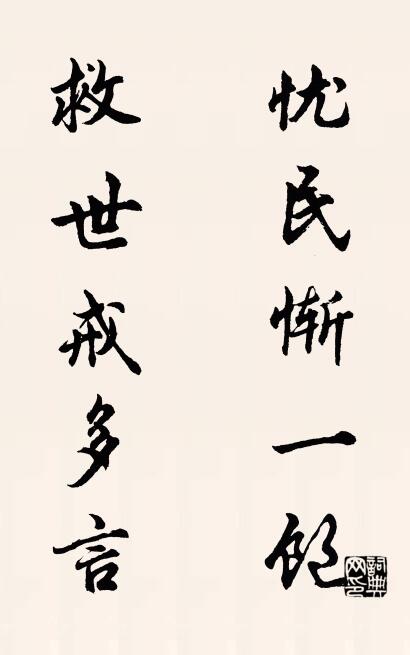 忧民惭一饱
救世戒多言
詞典网印